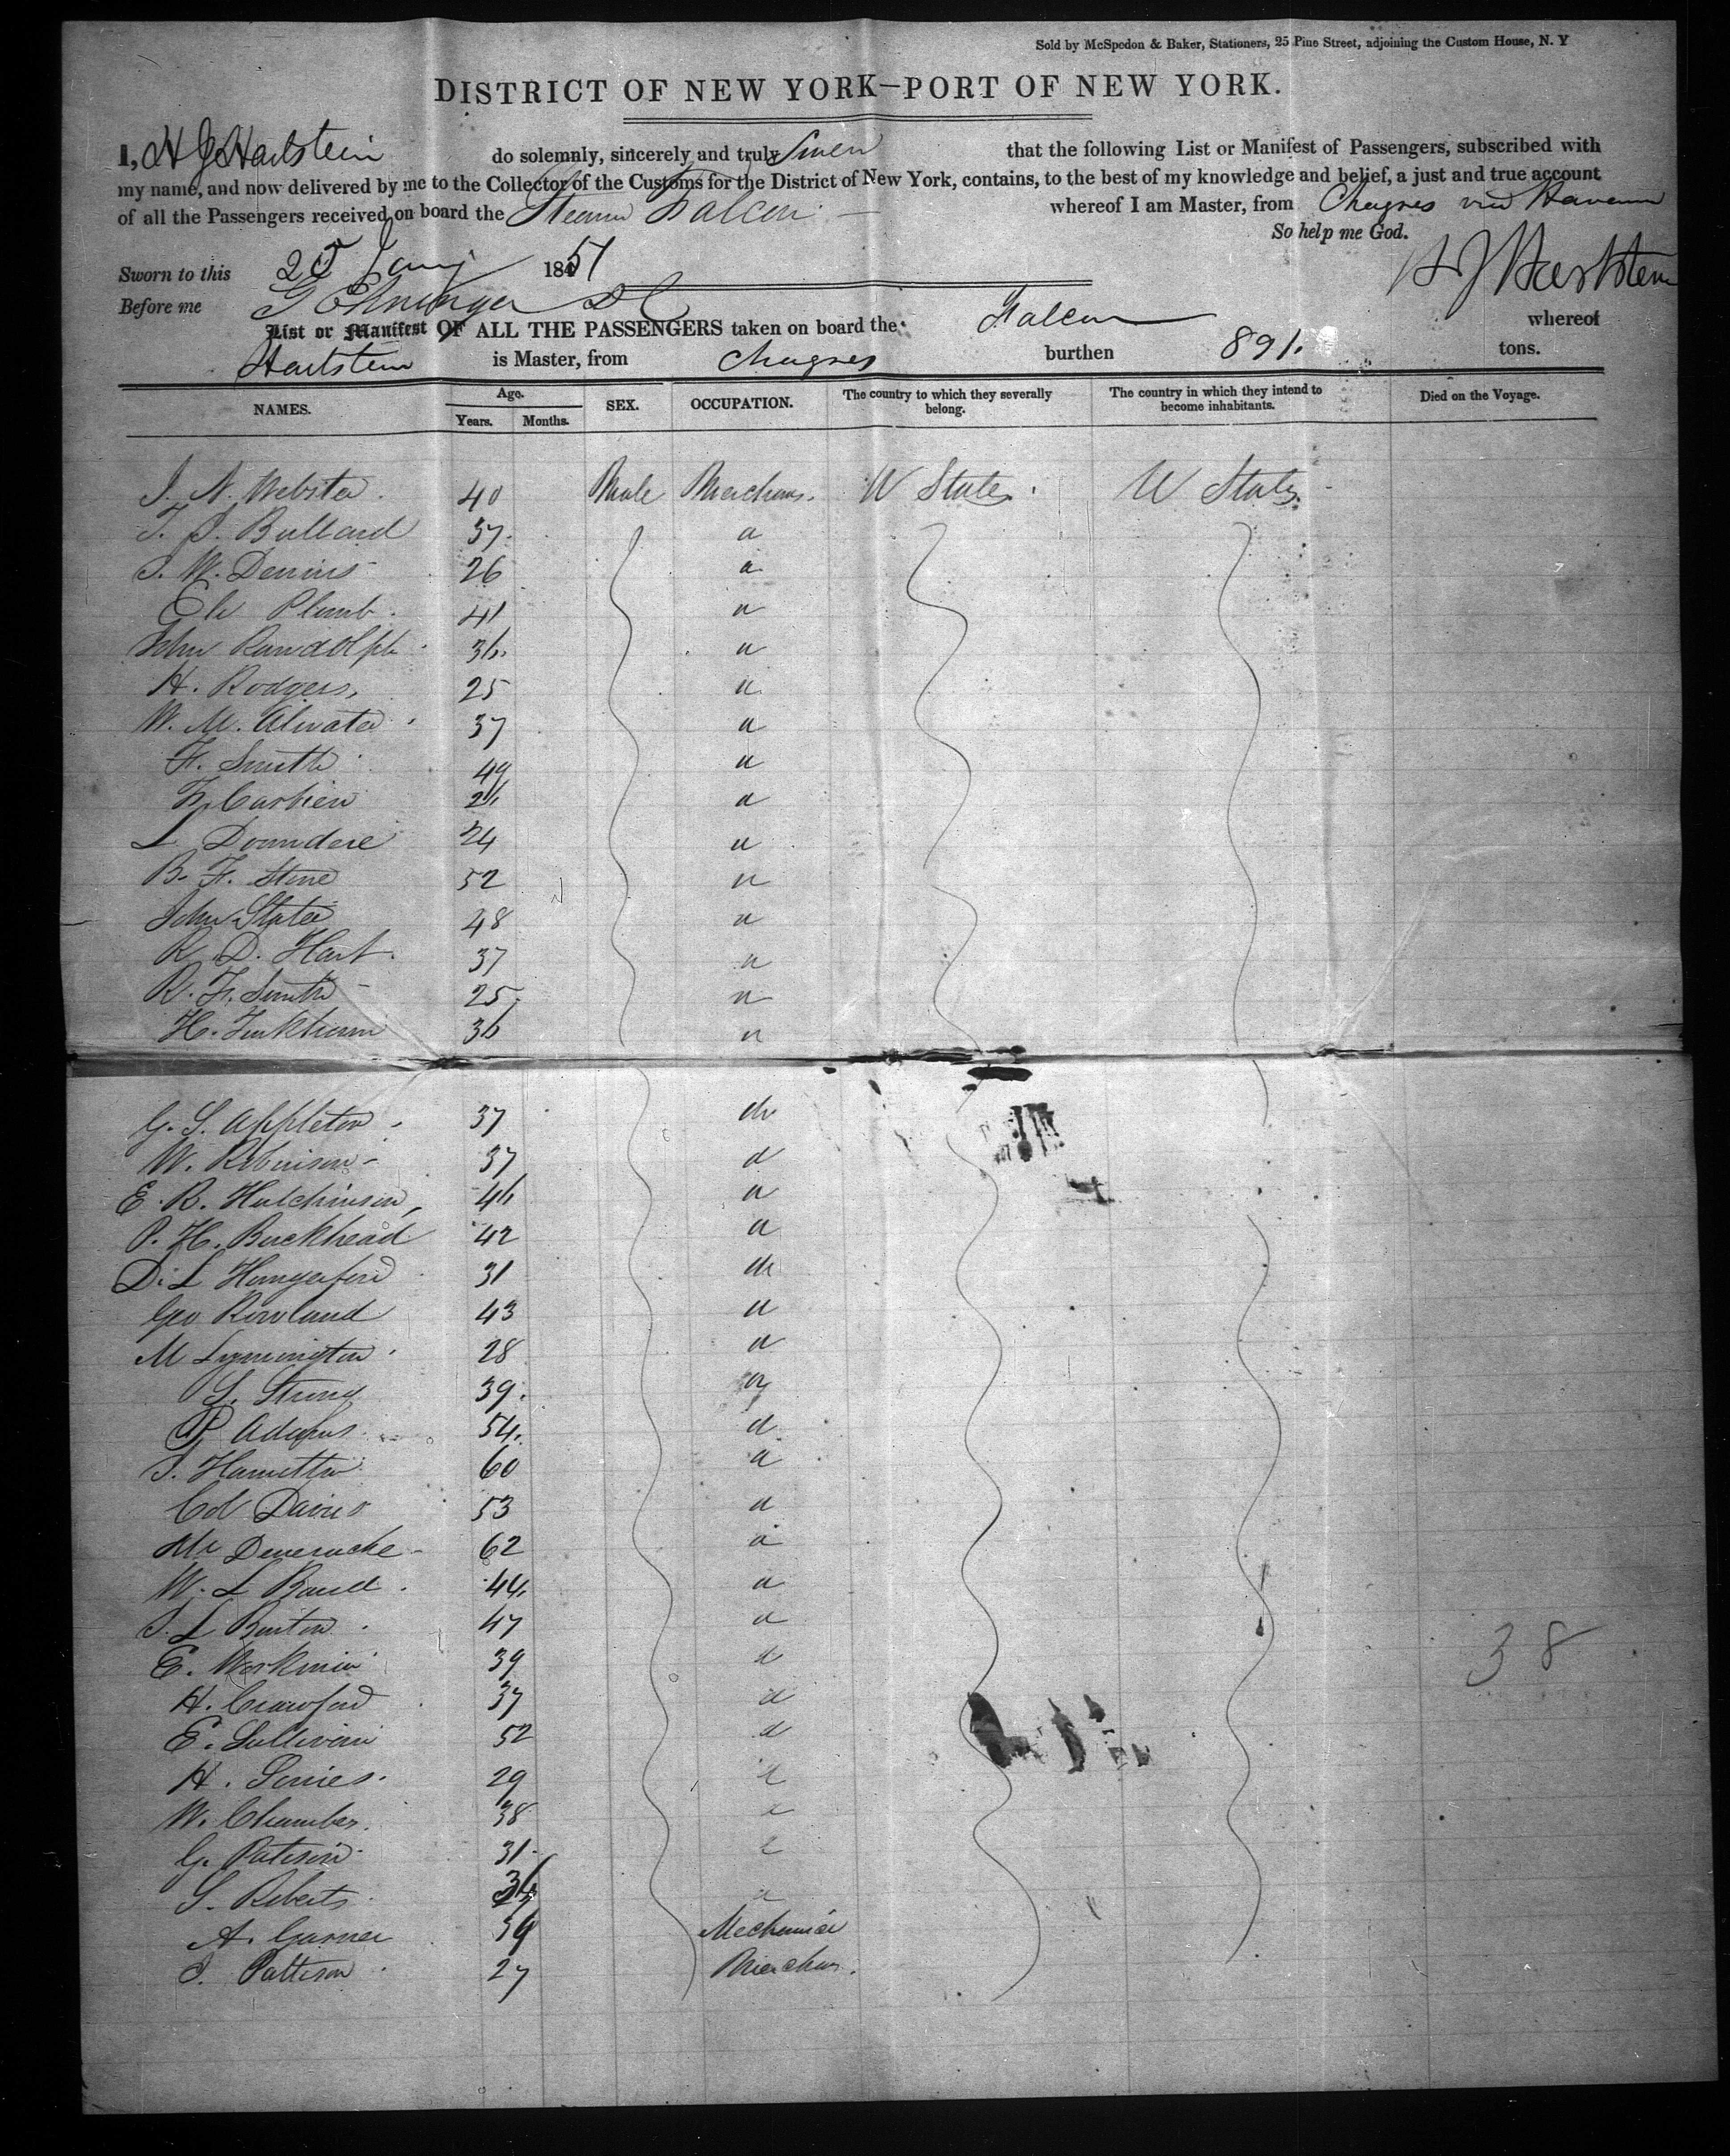 Sold by McSpedon & Baker, Stationers, 25 Pine Street, adjoining the Custom House, N. Y
DISTRICT OF NEW YORK—PORT OF NEW YORK.
I, H J Hartstein do solemnly, sincerely and truly Swear that the following List or Manifest of Passengers, subscribed with
my name, and now delivered by me to the Collector of the Customs for the District of New York, contains, to the best of my knowledge and belief, a just and true account
of all the Passengers received on board the Steamer Falcon whereof I am Master, from Chagres via Havana
So help me God.
Sworn to this 25 Jany 1851
H J Hartstein
Before me
List or Manifest OF ALL THE PASSENGERS taken on board the Falcon whereof
Hartstein is Master, from Chagres burthen 891. tons.
NAMES. Age. Years. Months. SEX. OCCUPATION. The country to which they severally belong. The country in which they intend to become inhabitants. Died on the Voyage.
J. N. Webster. 40 Male Merchans. U States. U States.
T. S. Bullard 37. a
S. W. Dennis 26 a
Eli Plumb. 41 a
John Randolph 36. a
H. Rodgers, 25 a
W. M. Atwater 37 a
F. Smith 49 a
26 a
L 24 a
B. F. Stone 52 a
John Slater 48 a
R. D. Hart. 37 a
R. F. Smith 25. a
H. Tinkham 36 a
G. S. Appleton 37 do
W. Robinson 37 d
E. R. Hutchinson, 46 a
P. H. Buckhead 42 a
D. L Hungerford 31 do
Geo Rowland 43 a
M Lymington 28 a
S. Strong 39. a
P Adams 54. d
S. Hamilton 60 a
Col Davis 53 a
Mr 62 a
W. L Baud 44. a
S. L Burton 47 a
E. Workman 39 d
38
H. Crawford 37 d
E. Sullivan 52 d
H. 29
W. Chamber. 38
G. Patison 31.
S. Roberts
A. Garner 39 Mechanic
J. Pattison 27 Merchan.